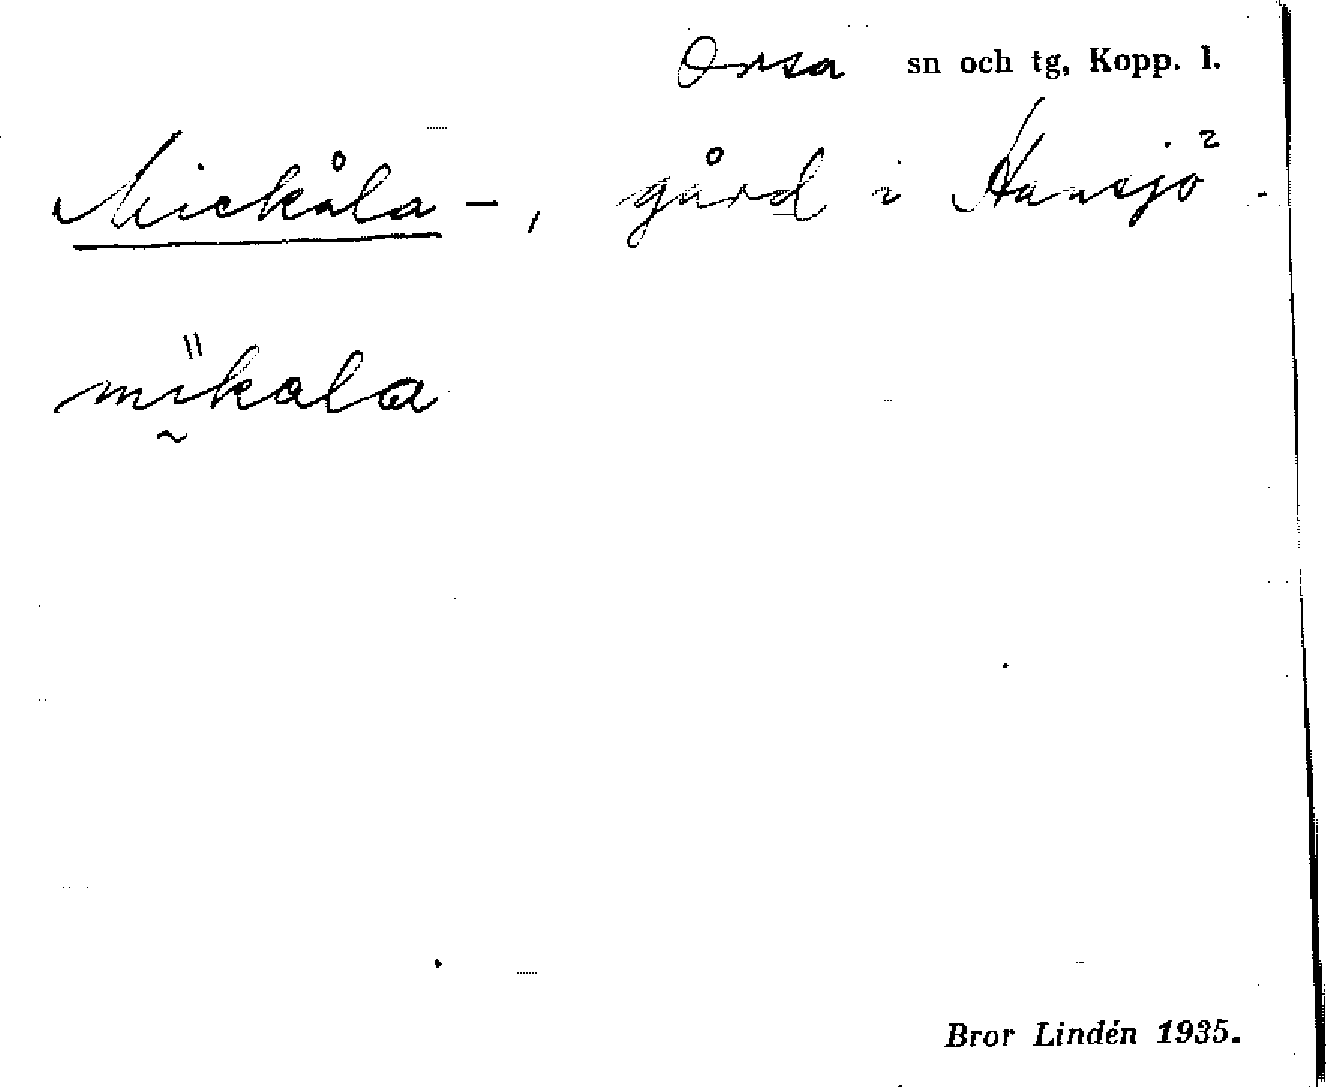 Orsa sn och tg, Kopp. l.
Mickåla -, gård i Hansjö.
mikala
Bror Lindén 1935.